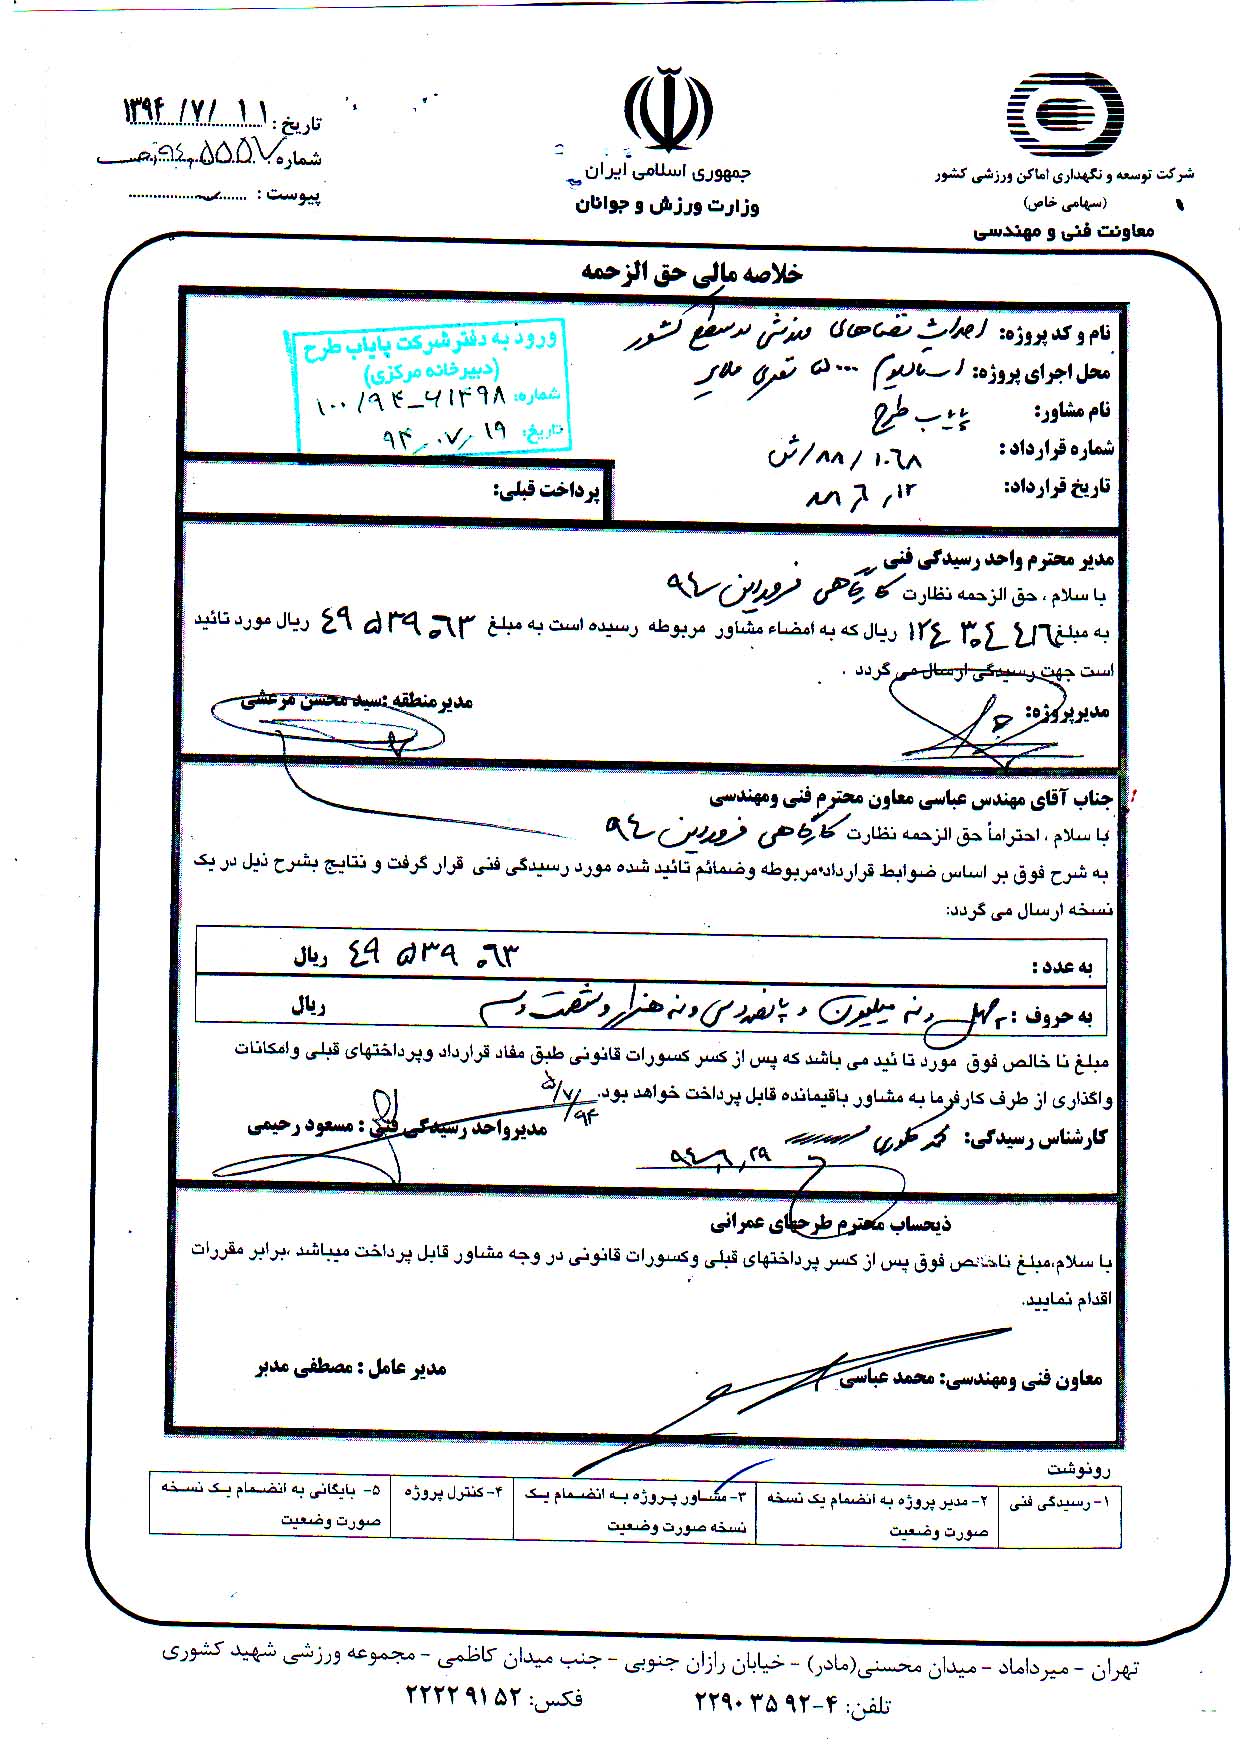 تاریخ: ۱۳۹۴/۷/۱۱
شماره: ۹۴,۵۵۵۷
پیوست:
جمهوری اسلامی ایران
وزارت ورزش و جوانان
شرکت توسعه و نگهداری اماکن ورزشی کشور
(سهامی خاص)
معاونت فنی و مهندسی
خلاصه مالی حق الزحمه
نام و کد پروژه: احداث فضاهای ورزشی در سطح کشور
محل اجرای پروژه: استادیوم ۵۰۰۰ نفری ملایر
نام مشاور: پایاب طرح
شماره قرارداد: ۱۰۶۸/۸۸/ش
تاریخ قرارداد: ۸۸,۶,۱۲
ورود به دفتر شرکت پایاب طرح
(دبیرخانه مرکزی)
شماره: ۱۰۰/۹۴-۶۱۴۹۸
تاریخ: ۹۴,۰۷,۱۹
پرداخت قبلی:
مدیر محترم واحد رسیدگی فنی
با سلام، حق الزحمه نظارت کارگاهی فروردین ۹۴
به مبلغ ۱۲۴۳۰۴۴۱۶ ریال که به امضاء مشاور مربوطه رسیده است به مبلغ ۴۹۵۳۹۰۶۳ ریال مورد تائید
است جهت رسیدگی ارسال می گردد.
مدیرپروژه:
مدیرمنطقه: سید محسن مرعشی
جناب آقای مهندس عباسی معاون محترم فنی ومهندسی
با سلام، احتراماً حق الزحمه نظارت کارگاهی فروردین ۹۴
به شرح فوق بر اساس ضوابط قرارداد مربوطه وضمائم تائید شده مورد رسیدگی فنی قرار گرفت و نتایج بشرح ذیل در یک
نسخه ارسال می گردد:
به عدد: ۴۹۵۳۹۰۶۳ ریال
به حروف: چهل و نه میلیون و پانصد و سی و نه هزار و شصت و سه ریال
مبلغ نا خالص فوق مورد تا ئید می باشد که پس از کسر کسورات قانونی طبق مفاد قرارداد وپرداختهای قبلی وامکانات
واگذاری از طرف کارفرما به مشاور باقیمانده قابل پرداخت خواهد بود.
۹۴/۷/۵
کارشناس رسیدگی:
۹۴,۶,۲۹
مدیرواحد رسیدگی فنی: مسعود رحیمی
ذیحساب محترم طرحهای عمرانی
با سلام،مبلغ ناخالص فوق پس از کسر پرداختهای قبلی وکسورات قانونی در وجه مشاور قابل پرداخت میباشد،برابر مقررات
اقدام نمایید.
معاون فنی ومهندسی: محمد عباسی
مدیر عامل: مصطفی مدبر
رونوشت
۱- رسیدگی فنی
۲- مدیر پروژه به انضمام یک نسخه
صورت وضعیت
۳- مشاور پروژه به انضمام یک
نسخه صورت وضعیت
۴- کنترل پروژه
۵- بایگانی به انضمام یک نسخه
صورت وضعیت
تهران - میرداماد - میدان محسنی(مادر) - خیابان رازان جنوبی - جنب میدان کاظمی - مجموعه ورزشی شهید کشوری
تلفن: ۴-۲۲۹۰۳۵۹۲ فکس: ۲۲۲۲۹۱۵۲